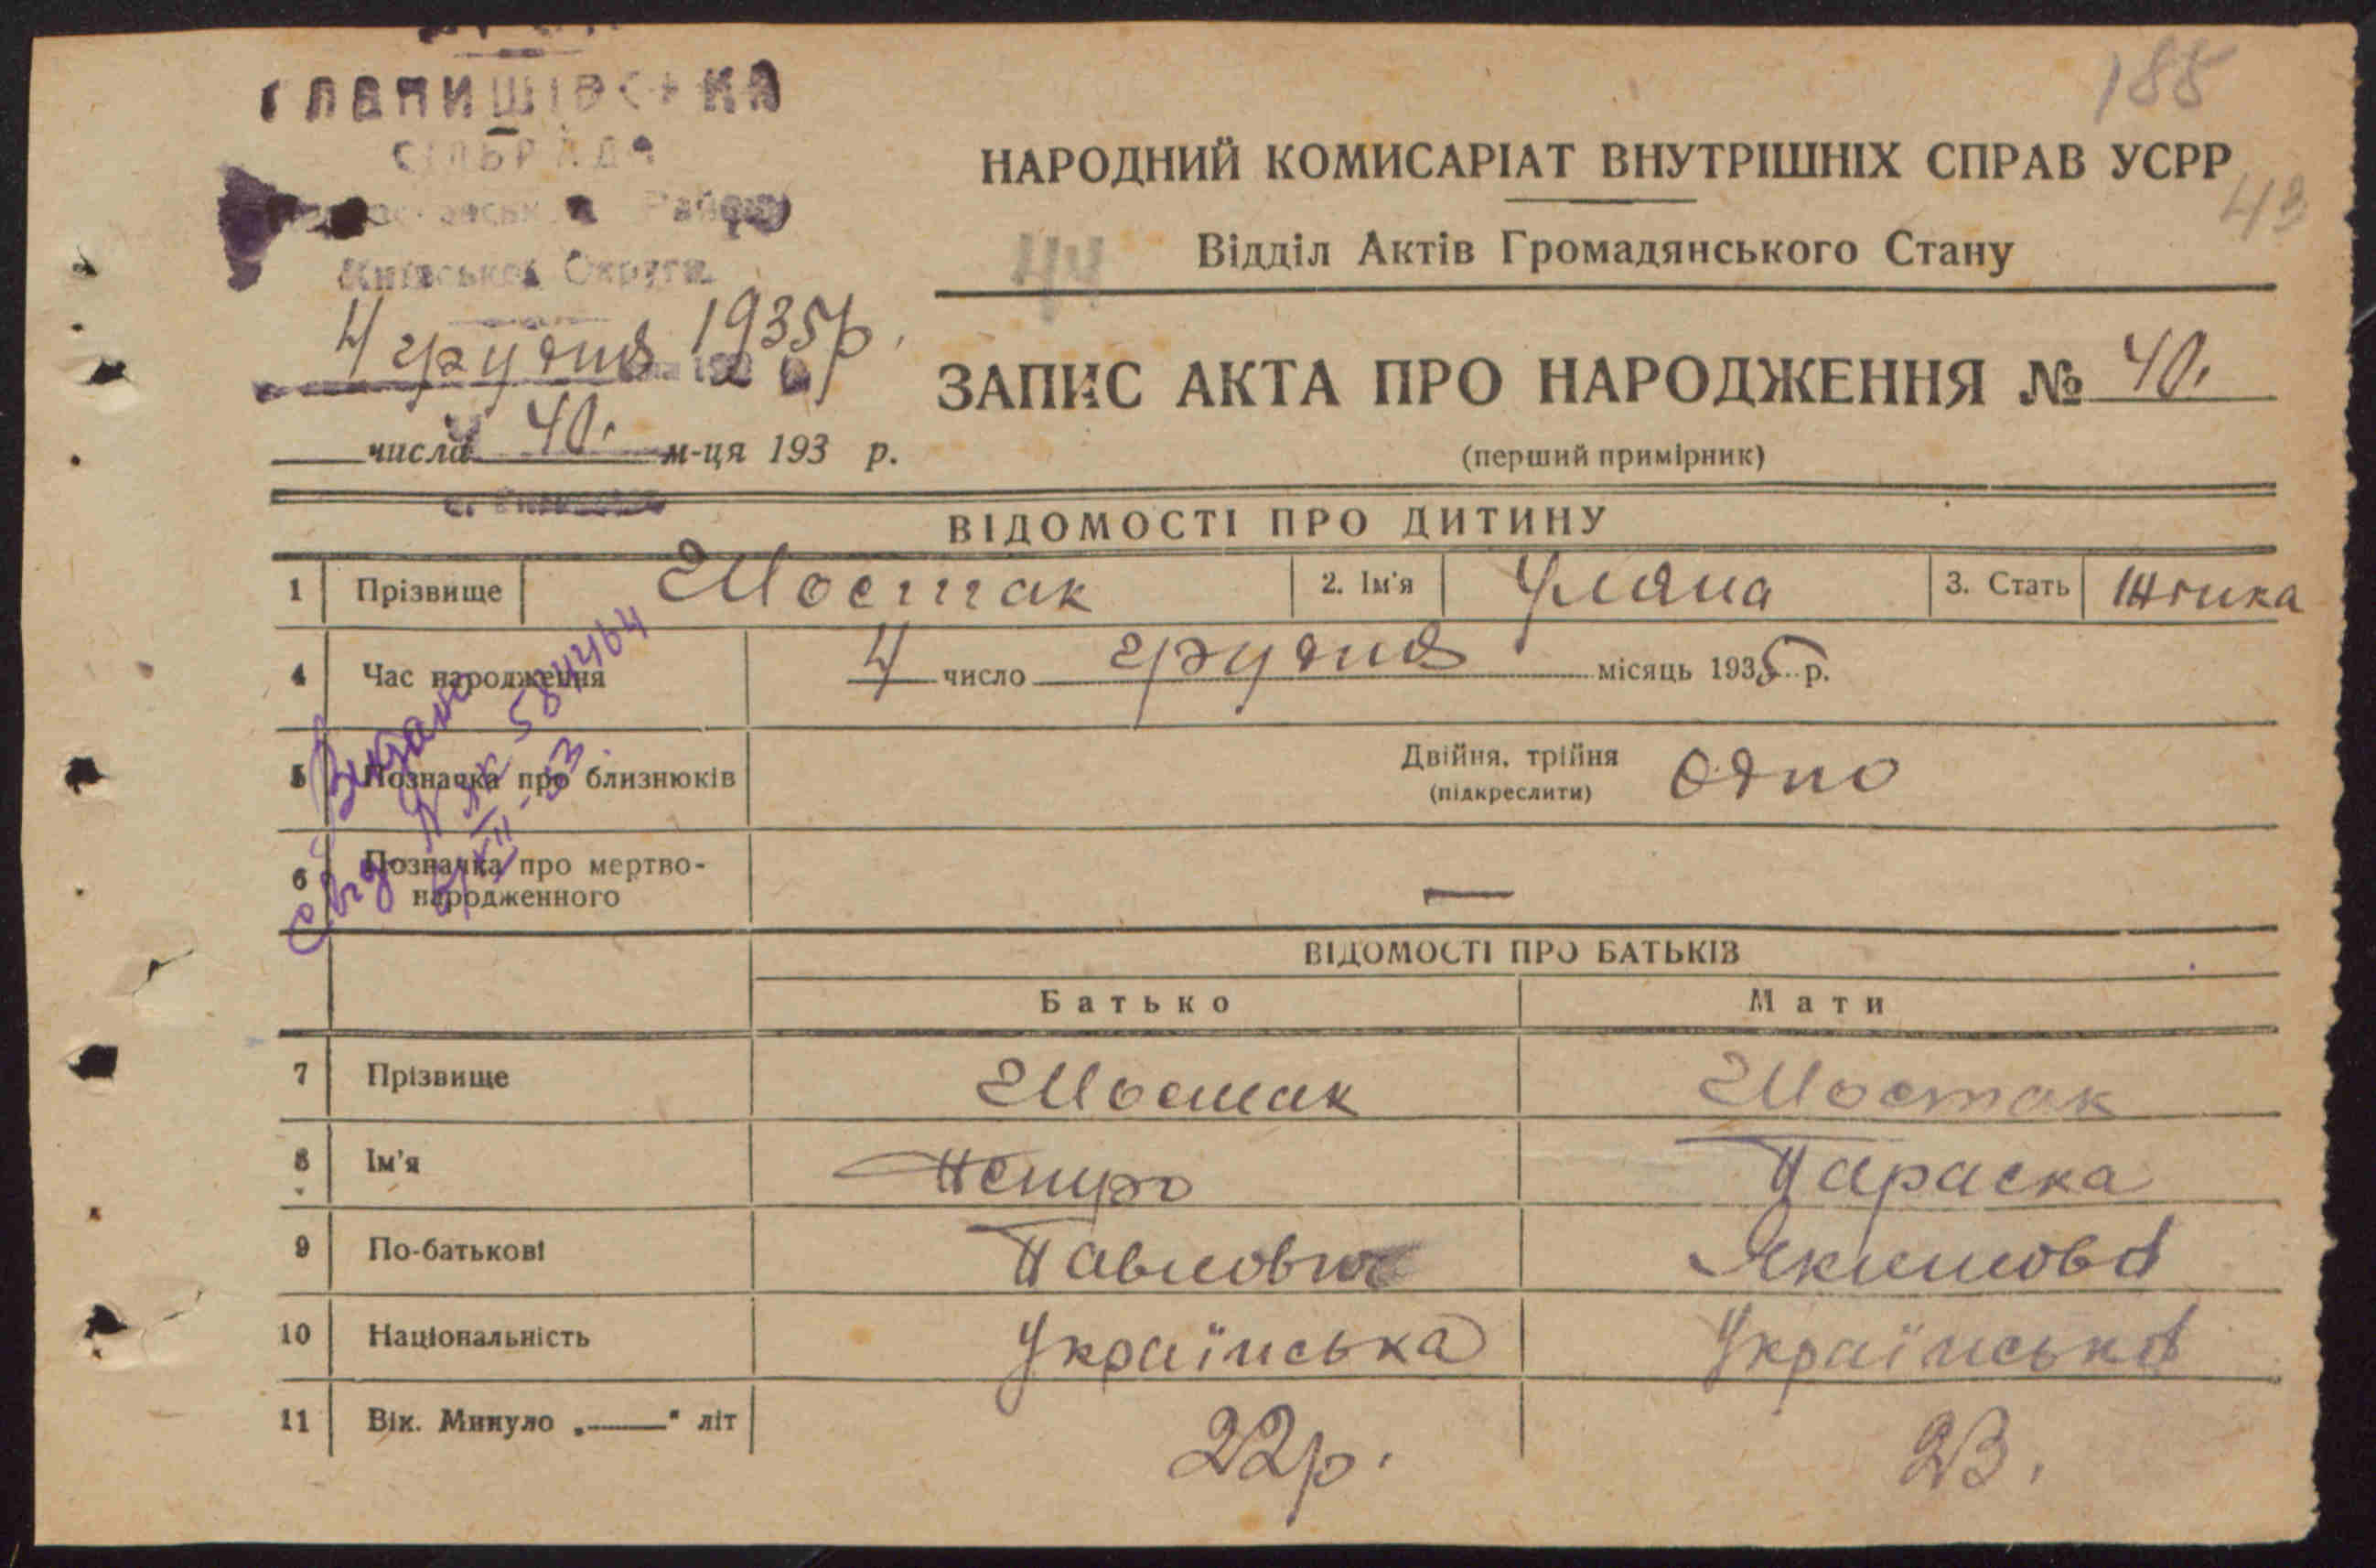 СІЛЬРАДА
Київської Округи
188
НАРОДНИЙ КОМИСАРІАТ ВНУТРІШНІХ СПРАВ УСРР
43
44
Відділ Актів Громадянського Стану
4 грудня 1935 р.
ЗАПИС АКТА ПРО НАРОДЖЕННЯ № 40.
числа 40. м-ця 193 р.
(перший примірник)
ВІДОМОСТІ ПРО ДИТИНУ
1 Прізвище Шостак 2. Ім'я Уляна 3. Стать Жінка
4 Час народження 4 число грудня місяць 1935 р.
5 Позначка про близнюків Двійня, трійня (підкреслити) Одно
6 Позначка про мертво-
народженного —
Видано
ВІДОМОСТІ ПРО БАТЬКІВ
Батько Мати
7 Прізвище Шостак Шостак
8 Ім'я Параска
9 По-батькові Павлович Якимова
10 Національність Українська Українська
11 Вік. Минуло „——" літ 22 р. 23.